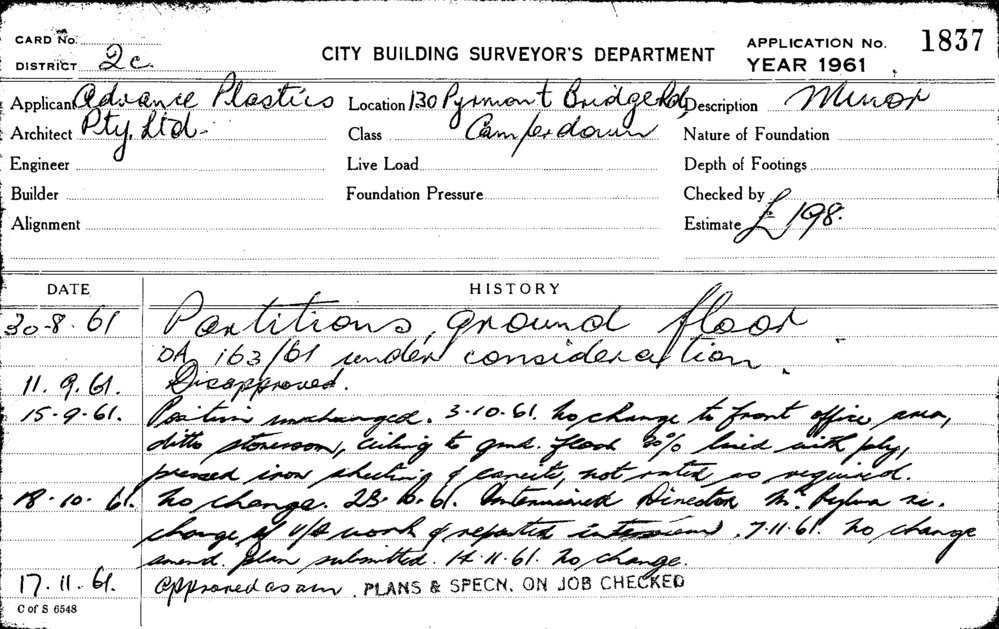 CARD No.
DISTRICT 2c.
CITY BUILDING SURVEYOR'S DEPARTMENT
APPLICATION No. 1837
YEAR 1961
Applicant Advance Plastics Location 130 Pyrmont Bridge Rd, Description Minor
Architect Pty. Ltd. Class Camperdown Nature of Foundation
Engineer Live Load Depth of Footings
Builder Foundation Pressure Checked by
Alignment Estimate £198.
DATE HISTORY
30-8-61 Partitions, ground floor
DA 163/61 under consideration.
11.9.61. Disapproved.
15-9-61. Position unchanged. 3-10-61. No change to front office area,
ditto storeroom, ceiling to gnd. floor 30% lined with ply,
pressed iron sheeting & canite, not rated as required.
18-10-61. No change. 23-10-61. Interviewed Director Mr. re.
change of work & reported interview. 7-11-61. No change
amend. plan submitted. 14-11-61. No change.
17.11.61. Approved as am. PLANS & SPECN. ON JOB CHECKED
C of S 6548